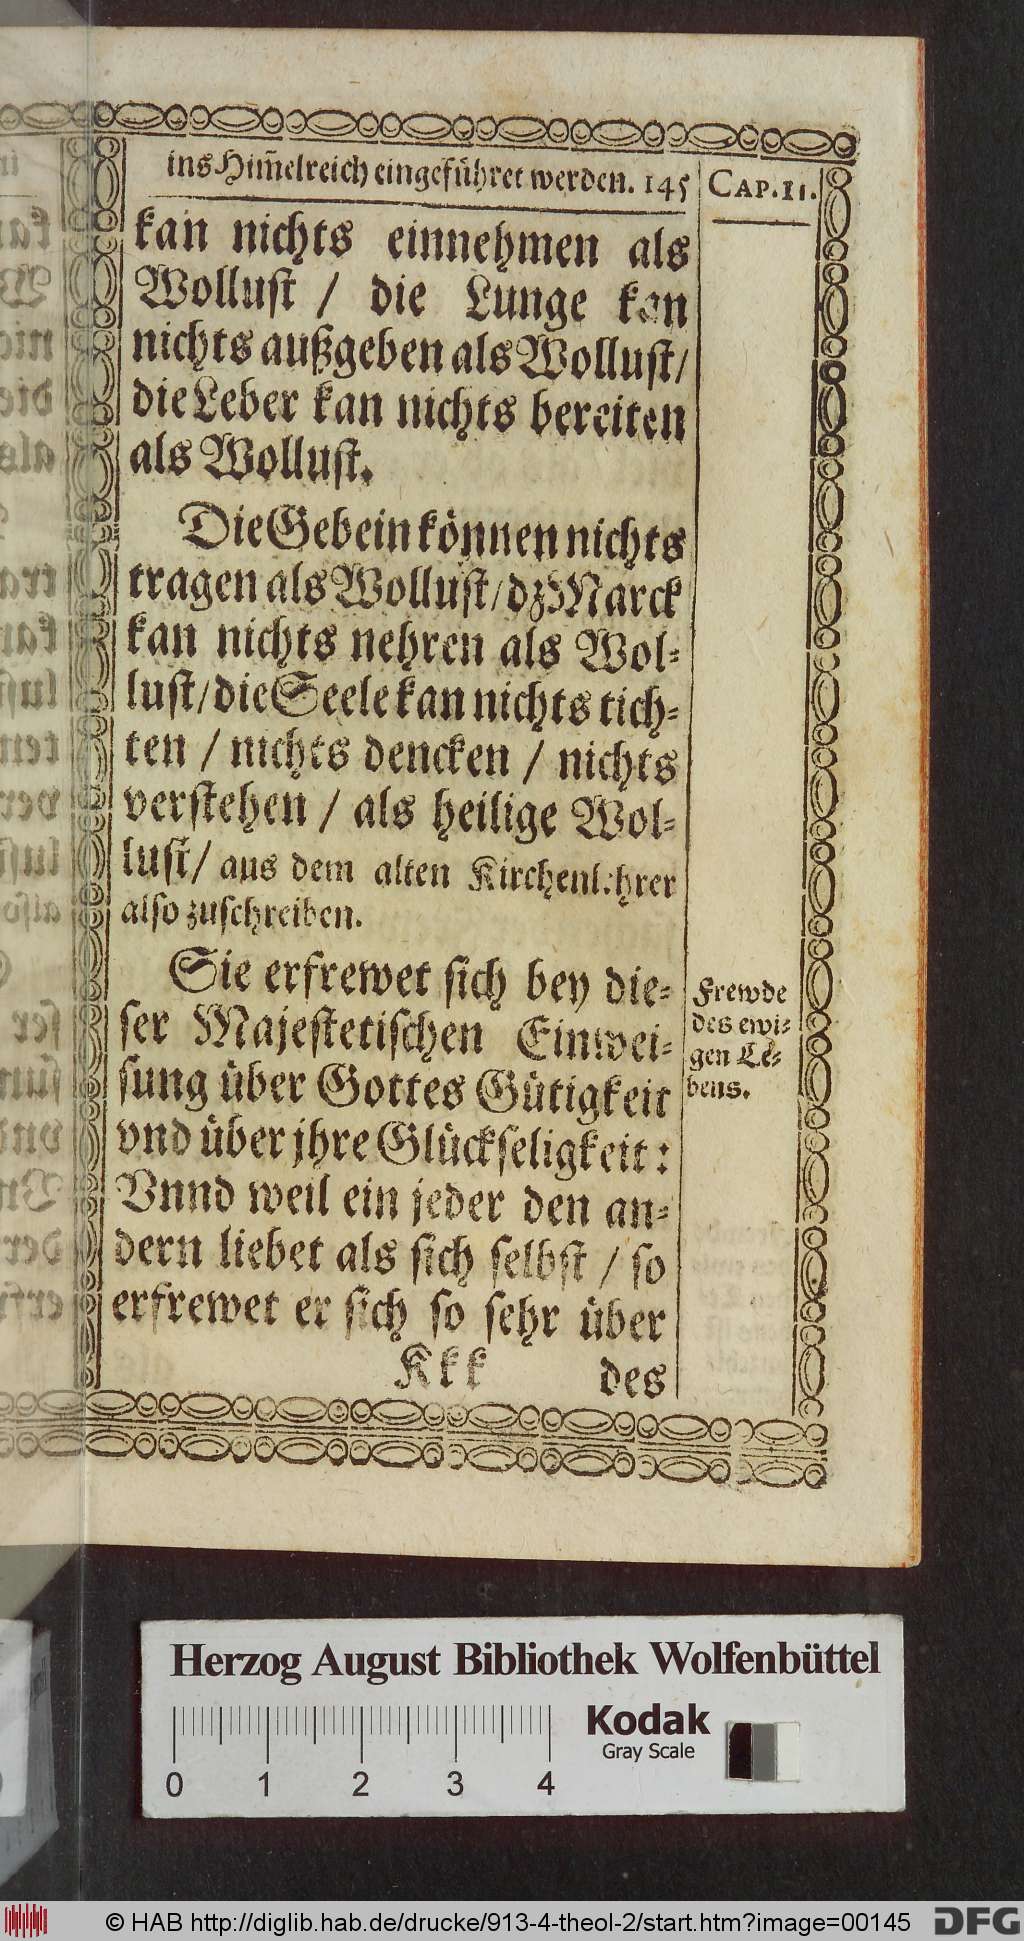 ins Him̃elreich eingeführet werden. 145
CAP. 11.
kan nichts einnehmen als
Wollust / die Lunge kan
nichts außgeben als Wollust/
die Leber kan nichts bereiten
als Wollust.
Die Gebein können nichts
tragen als Wollust/dz Marck
kan nichts nehren als Wol-
lust/die Seele kan nichts tich-
ten / nichts dencken / nichts
verstehen / als heilige Wol-
lust/ aus dem alten Kirchenlehrer
also zuschreiben.
Sie erfrewet sich bey die-
ser Majestetischen Einwei-
sung über Gottes Gütigkeit
vnd über jhre Glückseligkeit:
Vnnd weil ein jeder den an-
dern liebet als sich selbst / so
erfrewet er sich so sehr über
Kkk des
Frewde
des ewi-
gen Le-
bens.
Herzog August Bibliothek Wolfenbüttel
Kodak
Gray Scale
0 1 2 3 4
© HAB http://diglib.hab.de/drucke/913-4-theol-2/start.htm?image=00145
DFG